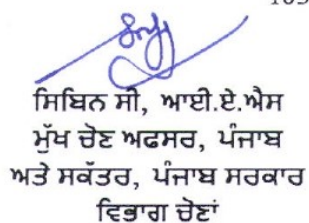 ਸਿਬਿਨ ਸੀ, ਆਈ.ਏ.ਐਸ
ਮੁੱਖ ਚੋਣ ਅਫਸਰ, ਪੰਜਾਬ
ਅਤੇ ਸਕੱਤਰ, ਪੰਜਾਬ ਸਰਕਾਰ
ਵਿਭਾਗ ਚੋਣਾਂ